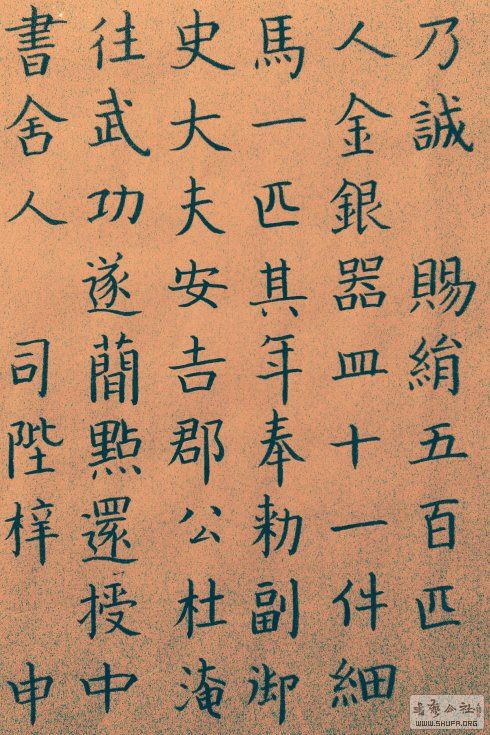 乃誠 賜絹五百匹
人金銀器皿十一件細
馬一匹其年奉勑副御
史大夫安吉郡公杜淹
往武功遂蕳點還授中
書舍人 司陛梓 申
WWW.SHUFA.ORG